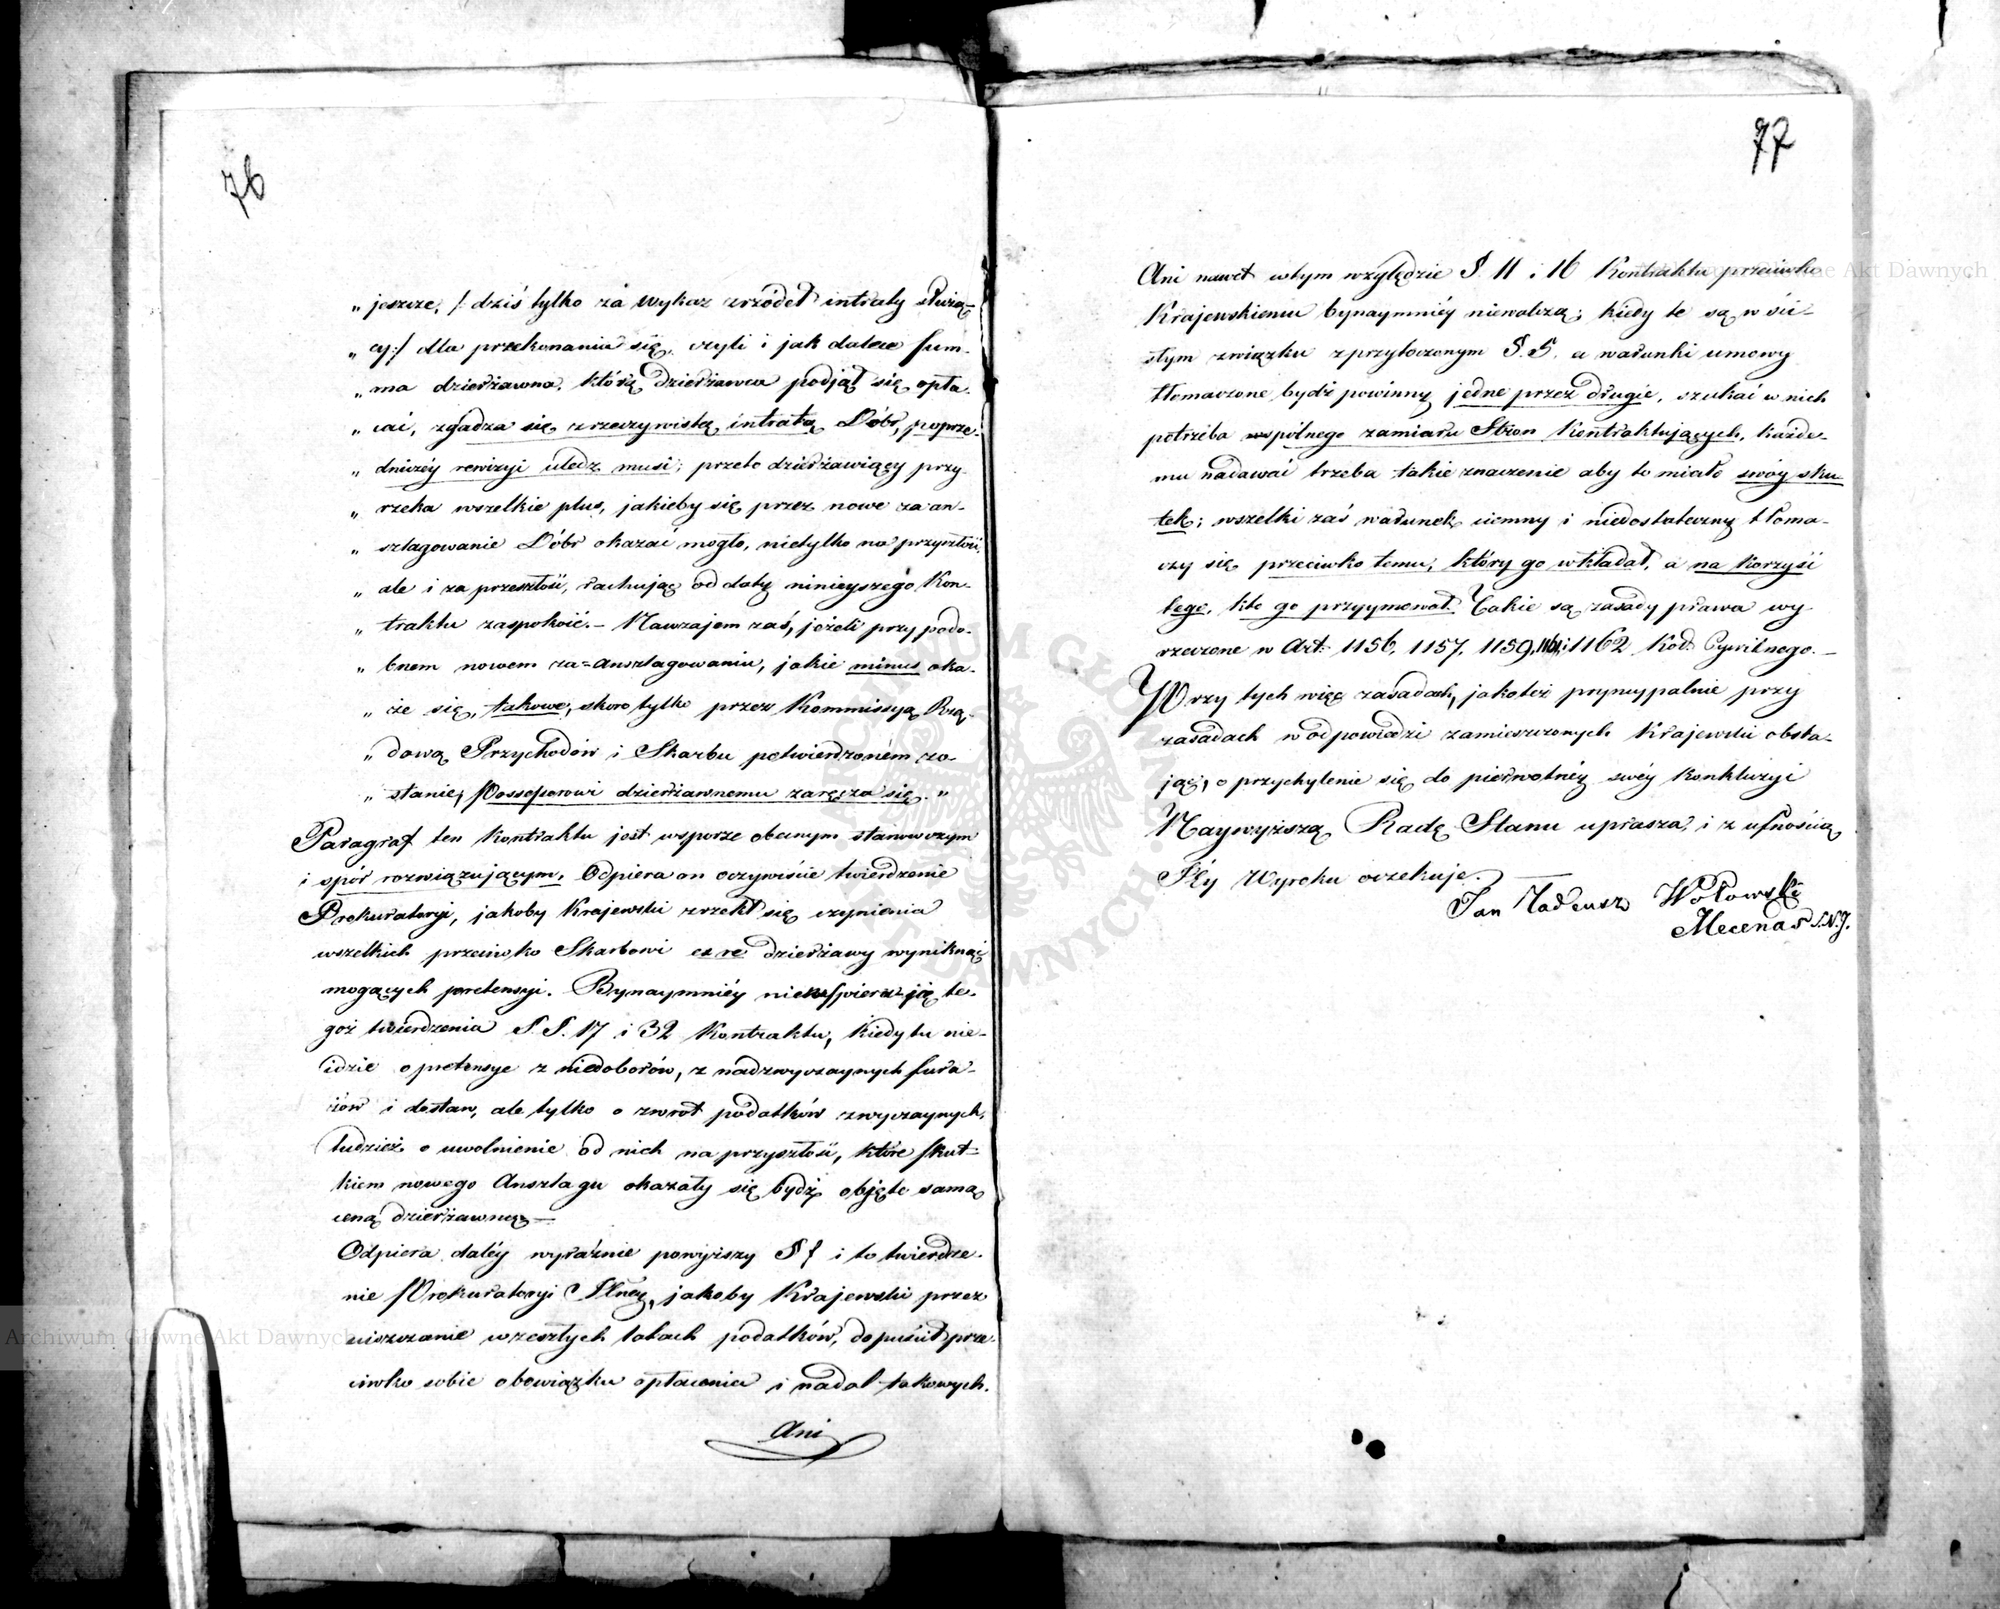 76
„ jeszcze, /: dziś tylko za wykaz źrzódeł intraty służą-
„ cy :/ dla przekonania się, czyli i jak dalece sum-
„ ma dzierżawna, którą dzierżawca podjął się opła-
„ cać, zgadza się z rzeczywistą intratą Dóbr, poprze-
„ dniczéy rewizyi uledz musi; przeto dzierżawiący przy-
„ rzeka wszelkie plus, jakieby się przez nowe za an-
„ szlagowanie Dóbr okazać mogło, nietylko na przyszłość,
„ ale i za przeszłość, rachując od daty ninieyszego Kon-
„ traktu zaspokoić. – Nawzajem zaś, jeżeli przy podo-
„ bnem nowem za=anszlagowaniu, jakie minus oka-
„ że się, takowe, skoro tylko przez Kommissyą Rzą-
„ dową Przychodów i Skarbu potwierdzoném zo-
„ stanie, Possessorowi dzierżawnemu zaręcza się. „
Paragraf ten Kontraktu jest w sporze obecnym stanowczym
i spór rozwiązującym. Odpiera on oczywiście twierdzenie
Prokuratoryi, jakoby Krajewski zrzekł się czynienia
wszelkich przeciwko Skarbowi ex re dzierżawy wyniknąć
mogących pretensyi. Bynaymniéy nie wspiera ją te-
goż twierdzenia §. §. 17 i 32 Kontraktu, kiedy tu nie-
idzie o pretensye z niedoborów, z nadzwyczaynych fura-
żów i dostaw, ale tylko o zwrot podatków zwyczaynych,
tudzież o uwolnienie od nich na przyszłość, które skut-
kiem nowego Anszlagu okazały się bydź objęte samą
ceną dzierżawną. —
Odpiera daléy wyraźnie powyższy § i to twierdze-
nie Prokuratoryi jakoby Krajewski przez
uiszczanie w zeszłych latach podatków, dopuścił prze-
ciwko sobie obowiązku opłacenia i nadal takowych.
Ani
77
Ani nawet w tym względzie § 11 i 16 Kontraktu przeciwko
Krajewskiemu bynaymniéy niewalczą; kiedy te są w ści-
słym związku z przytoczonym §. 5. a warunki umowy
tłomaczone bydź powinny jedne przez drugie, szukać w nich
potrzeba wspólnego zamiaru Stron Kontraktujących, każde-
mu nadawać trzeba takie znaczenie aby to miało swóy sku-
tek; wszelki zaś warunek ciemny i niedostateczny tłoma-
czy się przeciwko temu, który go wkładał, a na korzyść
tego, kto go przyymował. Takie są zasady prawa wy-
rzeczone w Art: 1156, 1157, 1159, 1161 i 1162 Kod: Cywilnego. —
Przy tych więc zasadach, jakoteż pryncypalnie przy
zasadach w odpowiedzi zamieszczonych Krajewski obsta-
jąc, o przychylenie się do pierwotnéy swéy Konkluzyi
Naywyższą Radę Stanu uprasza, i z ufnością
Jéy Wyroku oczekuje. —
Jan Tadeusz Wołowski
Mecenas S.N.J.